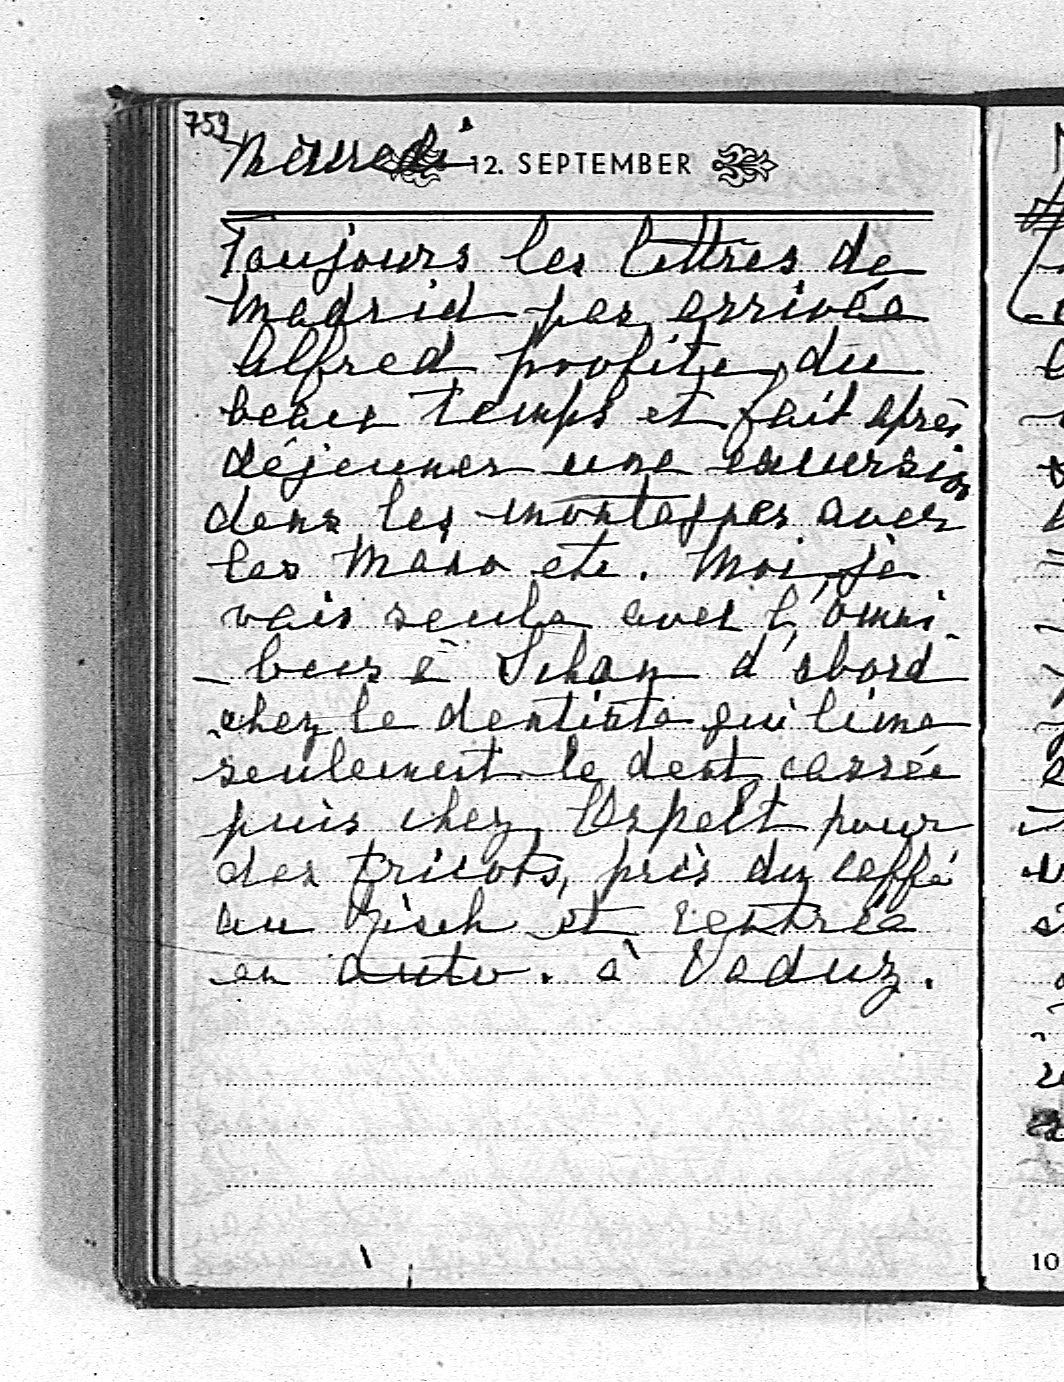 759
Mercredi 12. SEPTEMBER
Toujours les lettres de
Madrid pas arrivée
Alfred profite du
beau temps et fait après
déjeuner une excursion
dans les montagnes avec
les Maro etc. Moi, je
vais seule avec l'omni
bus à Schan d'abord
chez le dentiste qui lime
seulement le dent cassée
puis chez Ospelt pour
des tricots, près du caffé
au Risch et rentrée
en auto. à Vaduz.
10